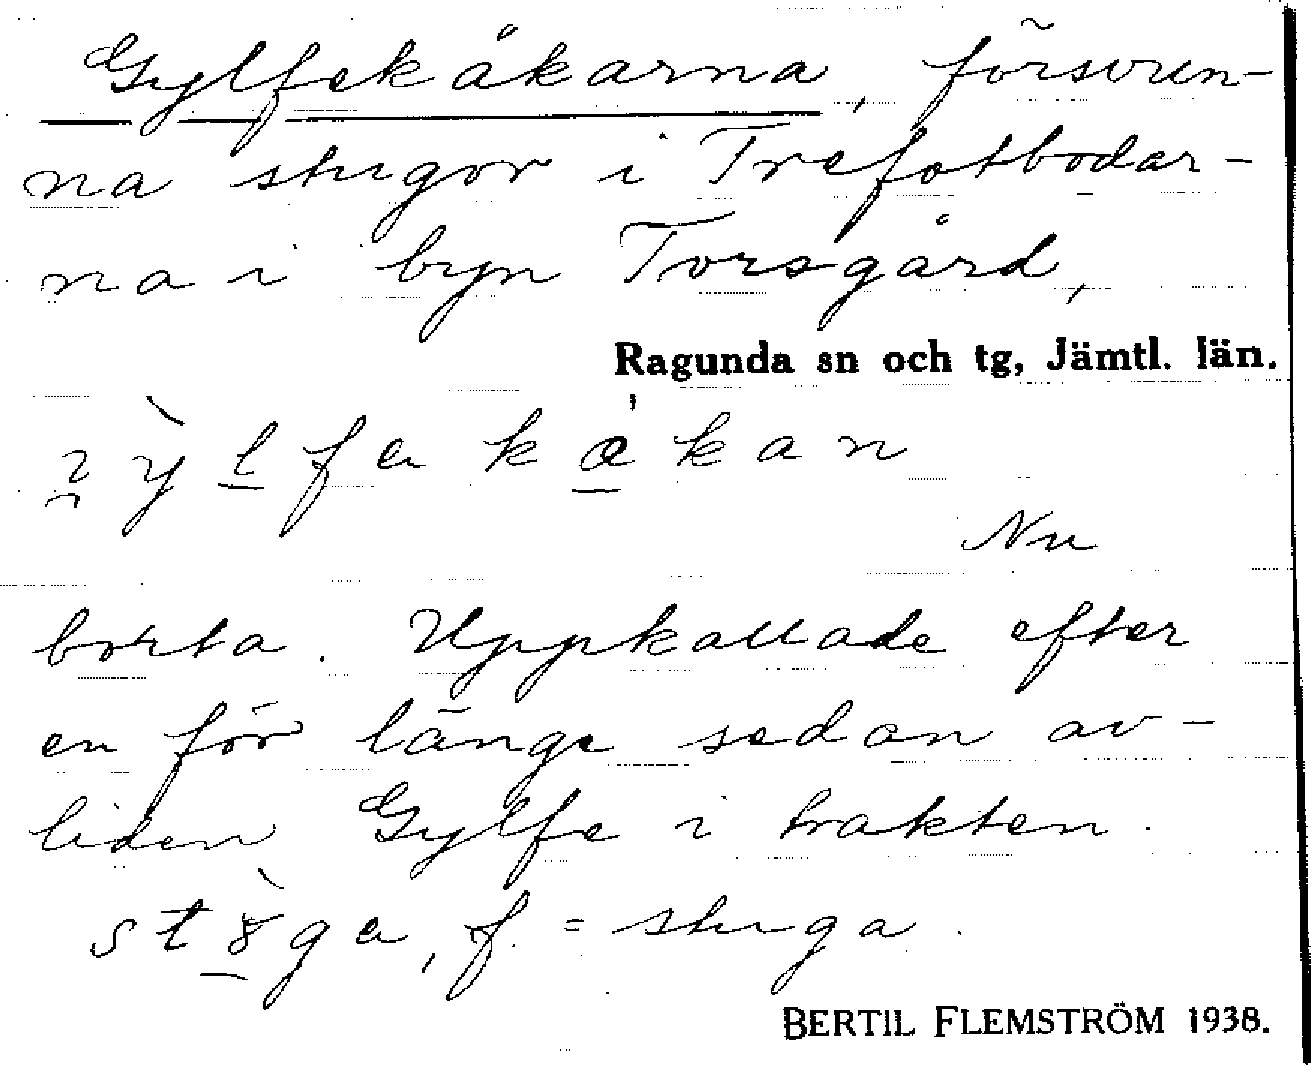 Gylfekåkarna, försvun-
na stugor i Trefotbodar-
na i byn Torsgård,
Ragunda sn och tg, Jämtl. län.
Nu
borta. Uppkallade efter
en för länge sedan av-
liden Gylfe i trakten.
f. = stuga.
BERTIL FLEMSTRÖM 1938.